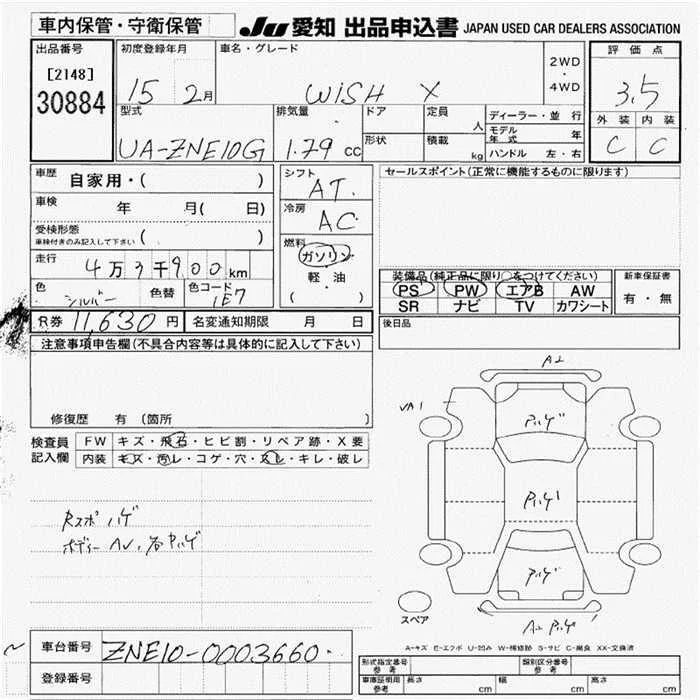 車内保管・守衛保管
JU 愛知 出品申込書 JAPAN USED CAR DEALERS ASSOCIATION
出品番号
[2148]
30884
初度登録年月
15 2月
車名・グレード
WISH X
2WD
・
4WD
評価点
3.5
外装 内装
C C
型式
UA-ZNE10G
排気量
1.79 cc
ドア
形状
定員
人
積載
kg
ディーラー・並 行
モデル年式 年
ハンドル 左・右
車歴 自家用・( )
車検 年 月( 日)
受検形態
車検付きのみ記入して下さい ( )
走行 4万3千900km
色 シルバー 色替 色コード 1E7
シフト
AT.
冷房
AC
燃料
ガソリン
・
軽・油
( )
セールスポイント(正常に機能するものに限ります)
装備品(純正品に限り○をつけてください)
PS PW エアB AW
SR ナビ TV カワシート
新車保証書
有・無
R券 11,630円 名変通知期限 月 日
後日品
注意事項申告欄(不具合内容等は具体的に記入して下さい)
修復歴 有 (箇所 )
検査員
記入欄
FW キズ・飛石・ヒビ割・リペア跡・X要
内装 キズ・汚レ・コゲ・穴・スレ・キレ・破レ
Rスポ ハゲ
ボディー AV、各ハゲ
A2
VA1
スペア
A2
A-キズ E-エクボ U-凹み W-補修跡 S-サビ C-腐食 XX-交換済
車台番号 ZNE10-0003660.
登録番号
型式指定番号
参考
類別区分番号
参考
車庫証明用
参考
長さ cm 幅 cm 高さ cm